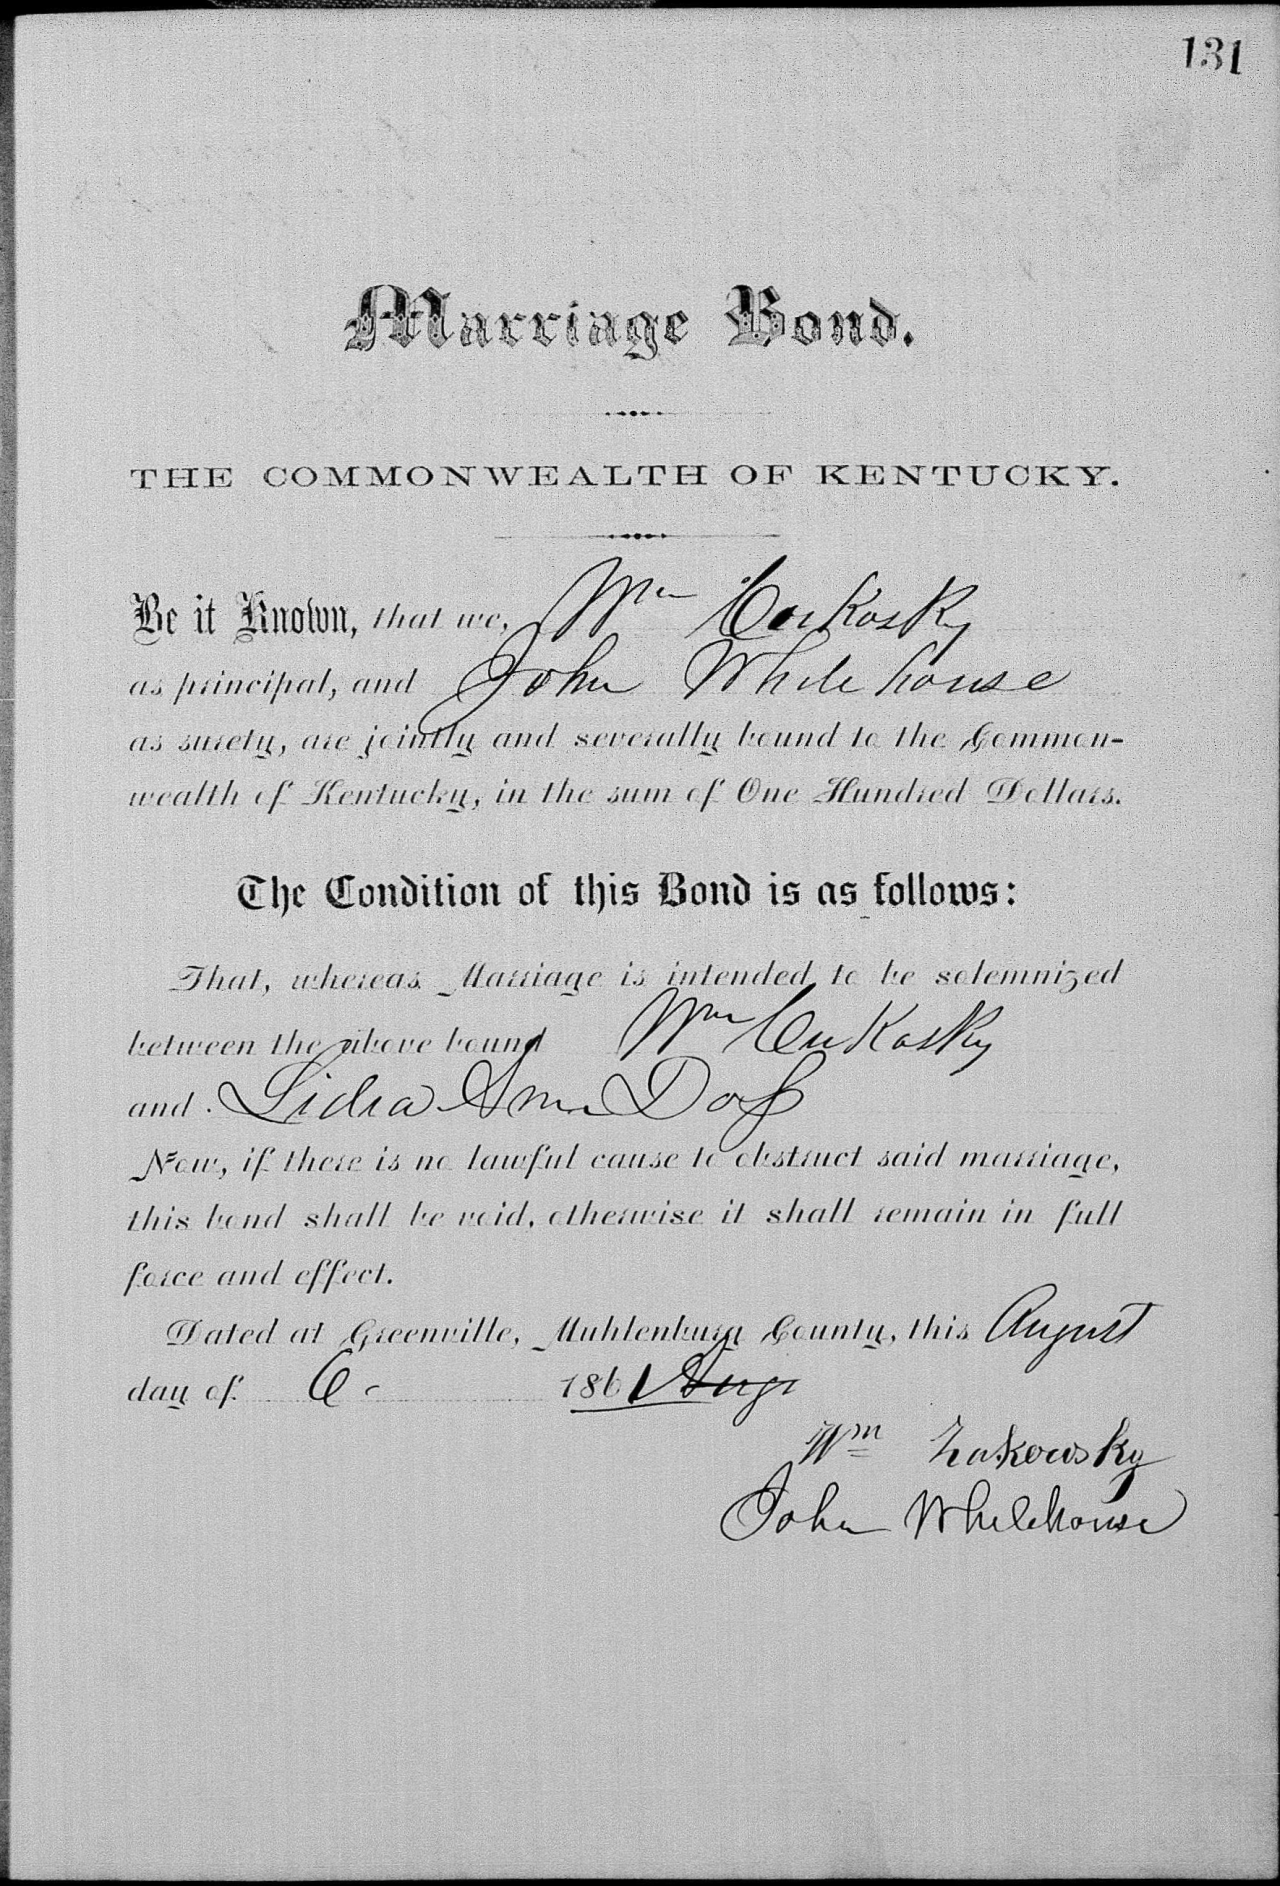 131
Marriage Bond.
THE COMMONWEALTH OF KENTUCKY.
Be it Known, that we, Wm CuKosKy
as principal, and John Whitehouse
as surety, are jointly and severally bound to the Common-
wealth of Kentucky, in the sum of One Hundred Dollars.
The Condition of this Bond is as follows:
That, whereas Marriage is intended to be solemnized
between the above bound Wm CuKosKy
and Lidia Ann Doss
Now, if there is no lawful cause to obstruct said marriage,
this bond shall be void, otherwise it shall remain in full
force and effect.
Dated at Greenville, Muhlenburg County, this August
day of 6 1861 Augt
Wm Zakowsky
John Whitehouse